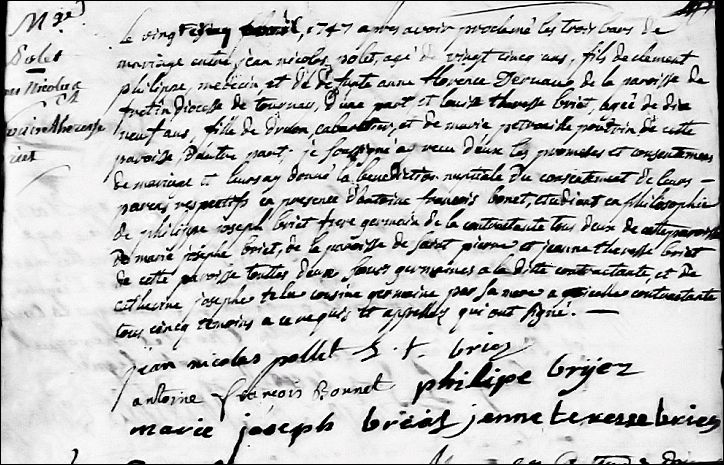 M.ge
Polet
Jean Nicolas
&
Louise Theresse
briet
Le vingt avril, 1747 apres avoir proclamé les trois bans de
mariage entre, jean nicolas polet, agé de vingt cinq ans, fils de clement
philippe, medecin, et de defunte anne florence Dervaux de la paroisse de
fretin diocese de tournay, d'une part et louise theresse briet, agée de dix
neuf ans, fille de druon, cabaretier, et de marie petronille poutrin de cette
paroisse, d'autre part; je soussigné ay receu d'eux les promesses et consentemens
de mariage et leurs ay donné la benediction nuptiale du consentement de leurs –
parens respectifs en presence d'antoine françois bonet, etudiant en philosophie
de philippe joseph briet frere germain de la contractante tous deux de cette paroisse
de marie josephe briet, de la paroisse de saint pierre et jeanne theresse briet
de cette paroisse touttes deux sœurs germaines a la ditte contractante, et de
catherine josephe cousine germaine par sa mere a icelle contractante
tous cinq temoins a ce requis et appellez qui ont signé. —
jean nicolas pollet L. t. briez
antoine françois Bonnet philipe brijez
marie joseph briés jenne teresse briez